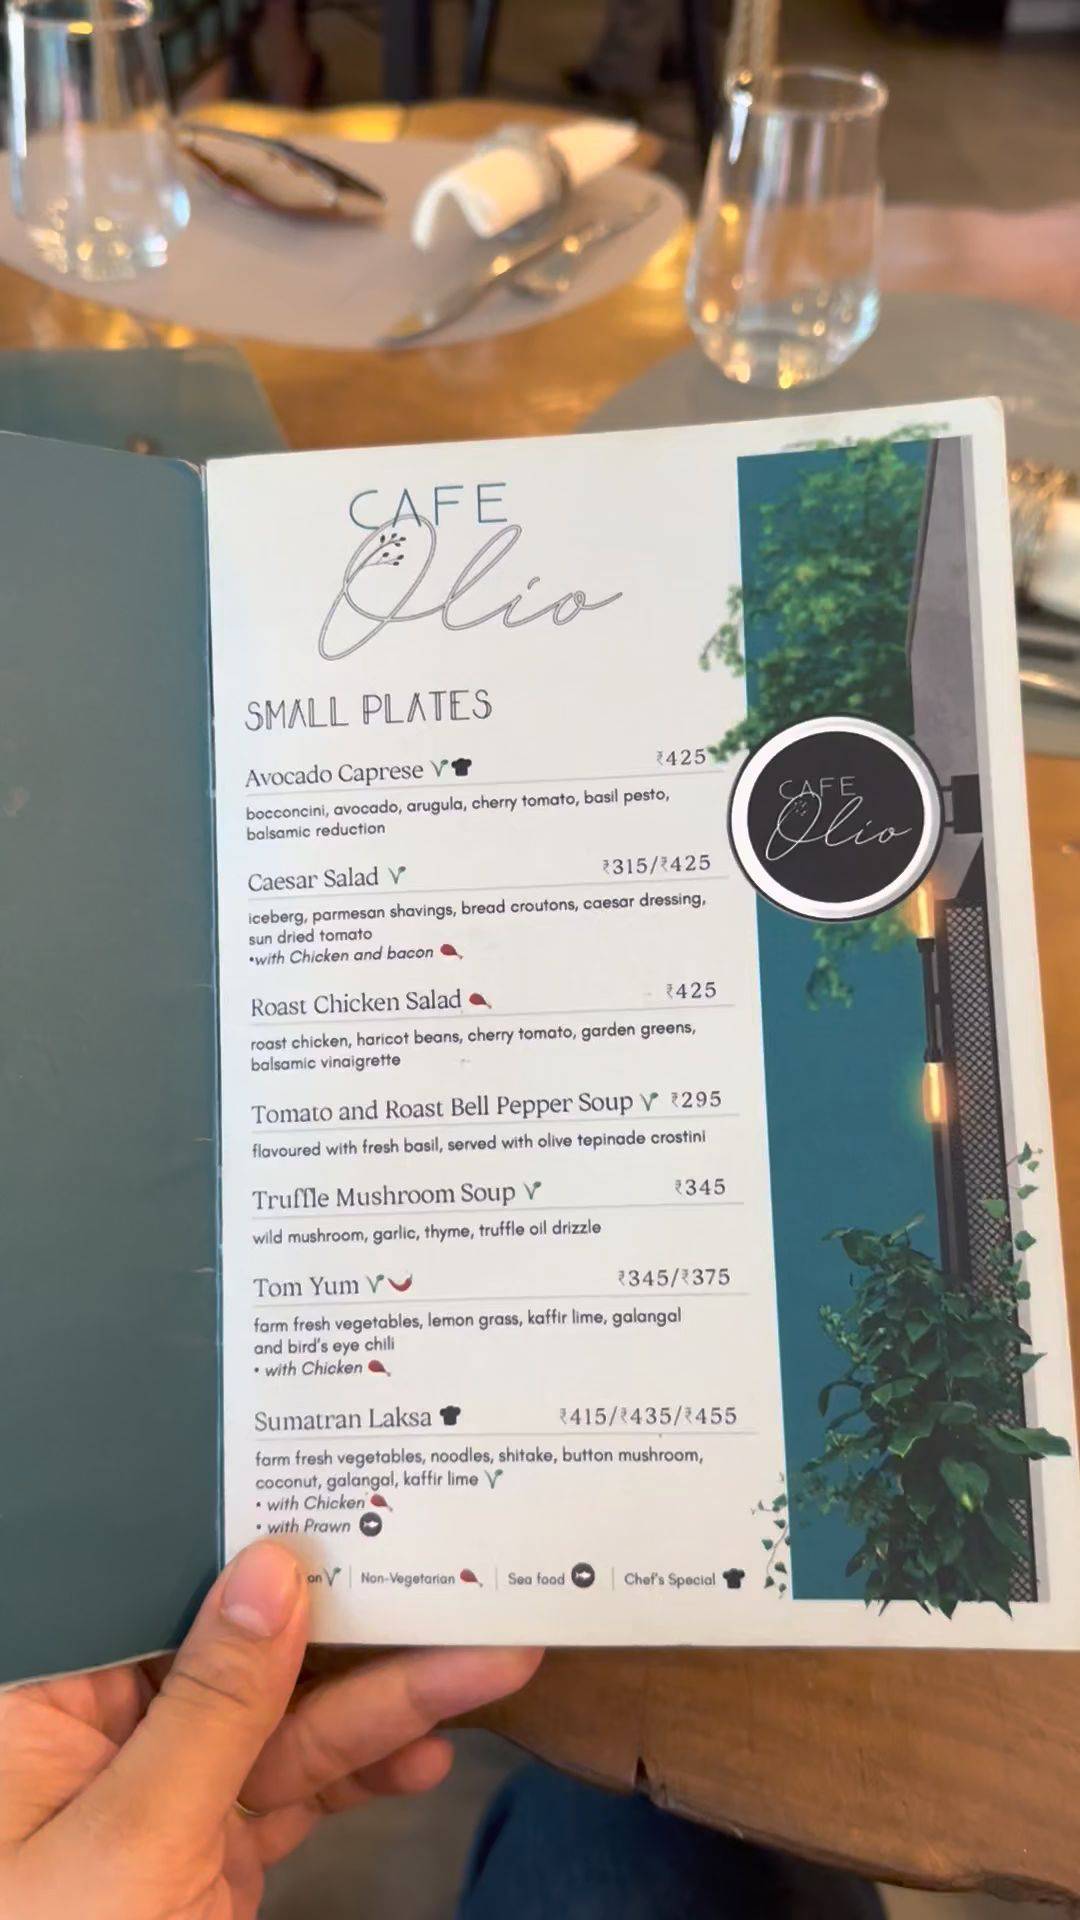 CAFE
Olio
SMALL PLATES
Avocado Caprese ₹425
bocconcini, avocado, arugula, cherry tomato, basil pesto,
balsamic reduction
CAFE
Olio
Caesar Salad ₹315/₹425
iceberg, parmesan shavings, bread croutons, caesar dressing,
sun dried tomato
•with Chicken and bacon
Roast Chicken Salad ₹425
roast chicken, haricot beans, cherry tomato, garden greens,
balsamic vinaigrette
Tomato and Roast Bell Pepper Soup ₹295
flavoured with fresh basil, served with olive tepinade crostini
Truffle Mushroom Soup ₹345
wild mushroom, garlic, thyme, truffle oil drizzle
Tom Yum ₹345/₹375
farm fresh vegetables, lemon grass, kaffir lime, galangal
and bird's eye chili
• with Chicken
Sumatran Laksa ₹415/₹435/₹455
farm fresh vegetables, noodles, shitake, button mushroom,
coconut, galangal, kaffir lime
• with Chicken
• with Prawn
an | Non-Vegetarian | Sea food | Chef's Special